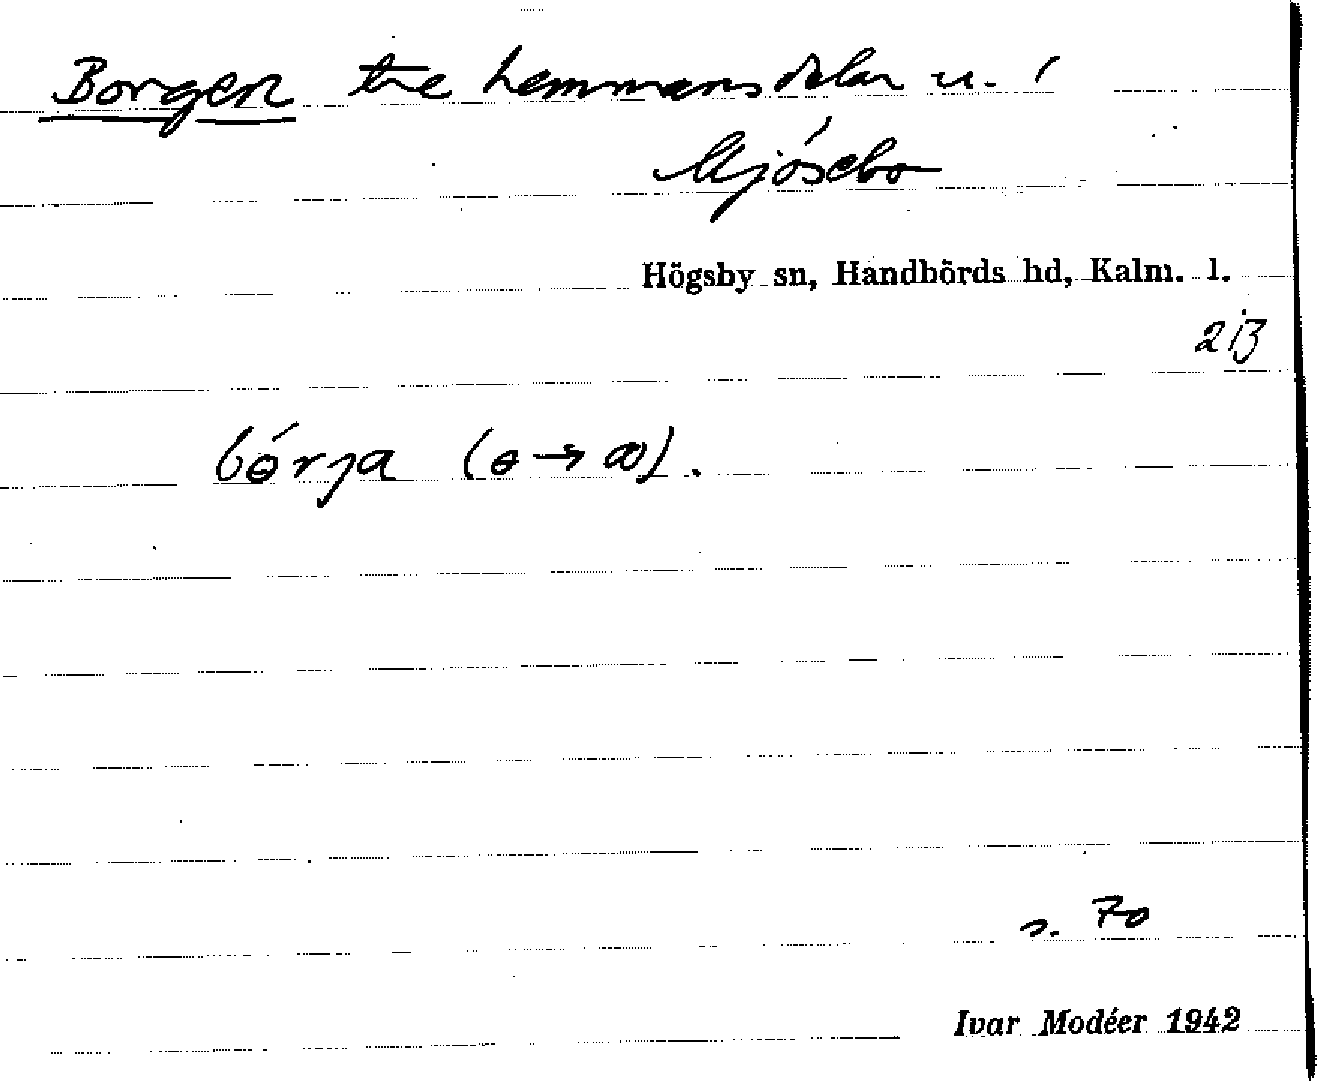 Borgen tre hemmansdelar u. /
Mjösebo
Högsby sn, Handbörds hd, Kalm. l.
2 B
bɵ́rja (ɵ → ꝏ).
s. 70
Ivar Modéer 1942